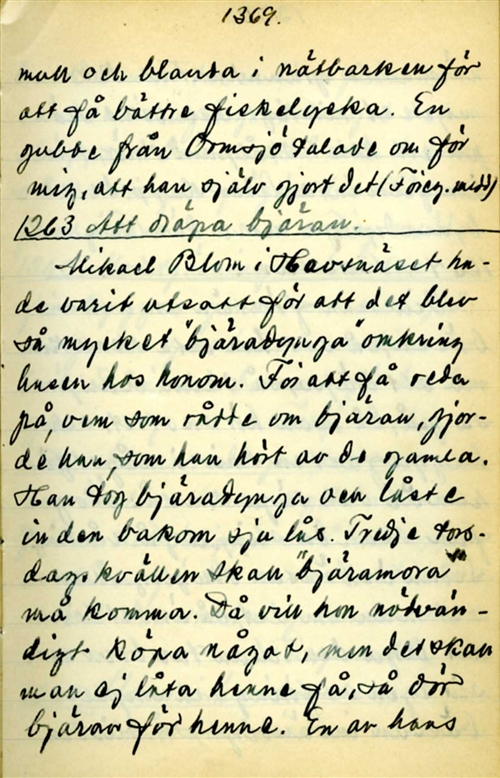 1369.
mull och blanda i nätbarken för
att få bättre fiskelycka. En
gubbe från Ormsjö talade om för
mig, att han själv gjort det (Föreg. medd)
1263 Att dräpa bjäran.
Mikael Blom i Havsnäset ha-
de varit utsatt för att det blev
så mycket "bjäradynga" omkring
husen hos honom. För att få reda
på, vem som rådde om bjäran, gjor-
de han, som han hört av de gamla.
Han tog bjäradynga och låste
in den bakom sju lås. Tredje tors-
dagskvällen skall "bjäramora"
må komma. Då vill hon nödvän-
digt köpa något, men det skall
man ej låta henne få, så dör
bjäran för henne. En av hans